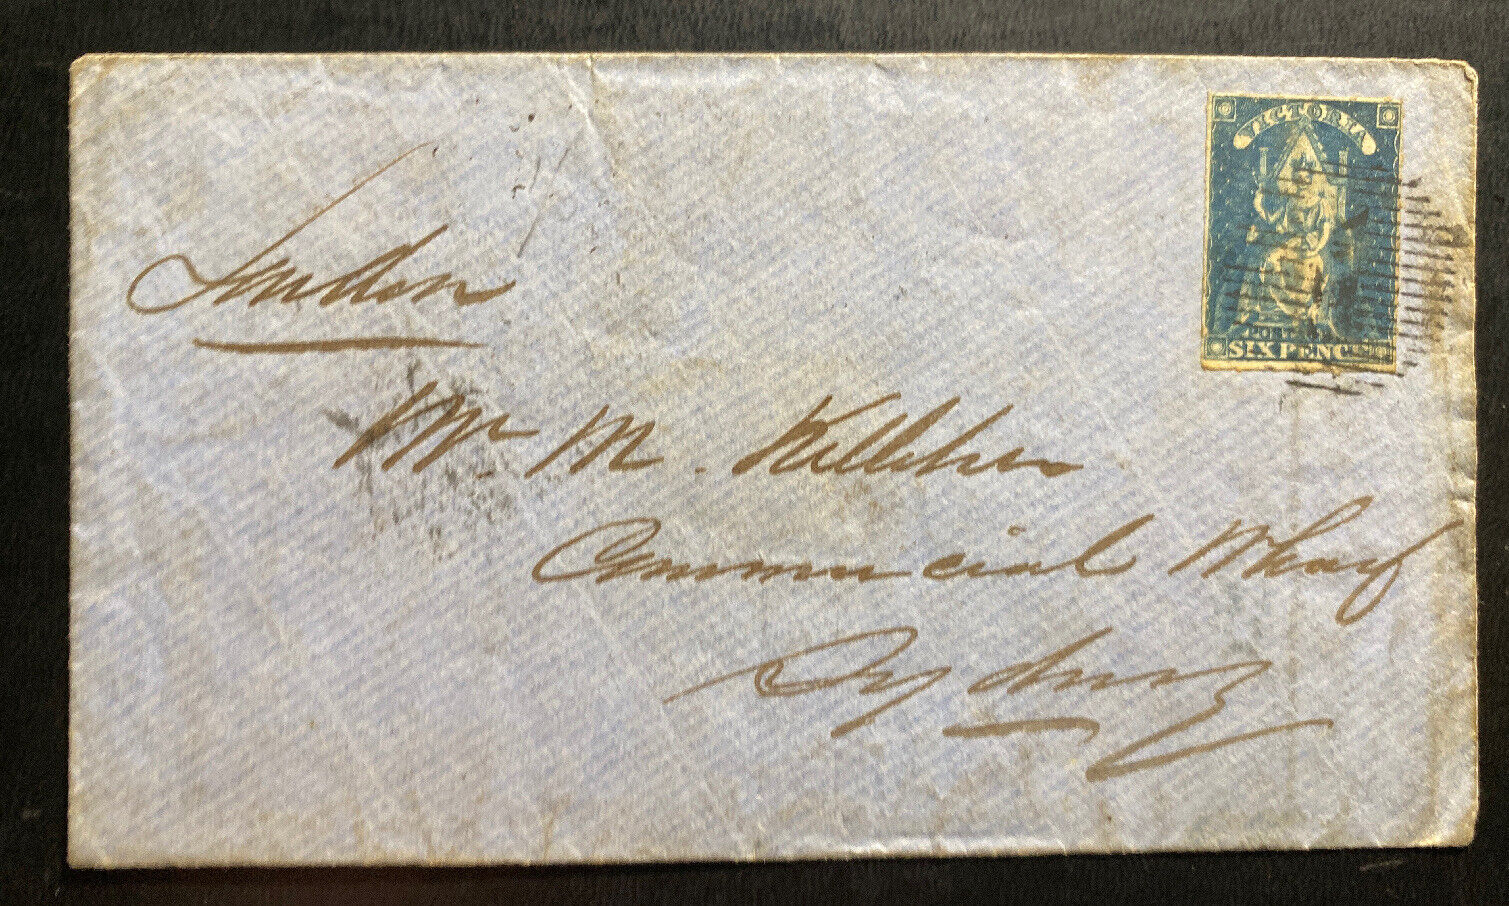 VICTORIA
SIX PENCE
London
Mr. M. Kelleher
Commercial Wharf
Sydney